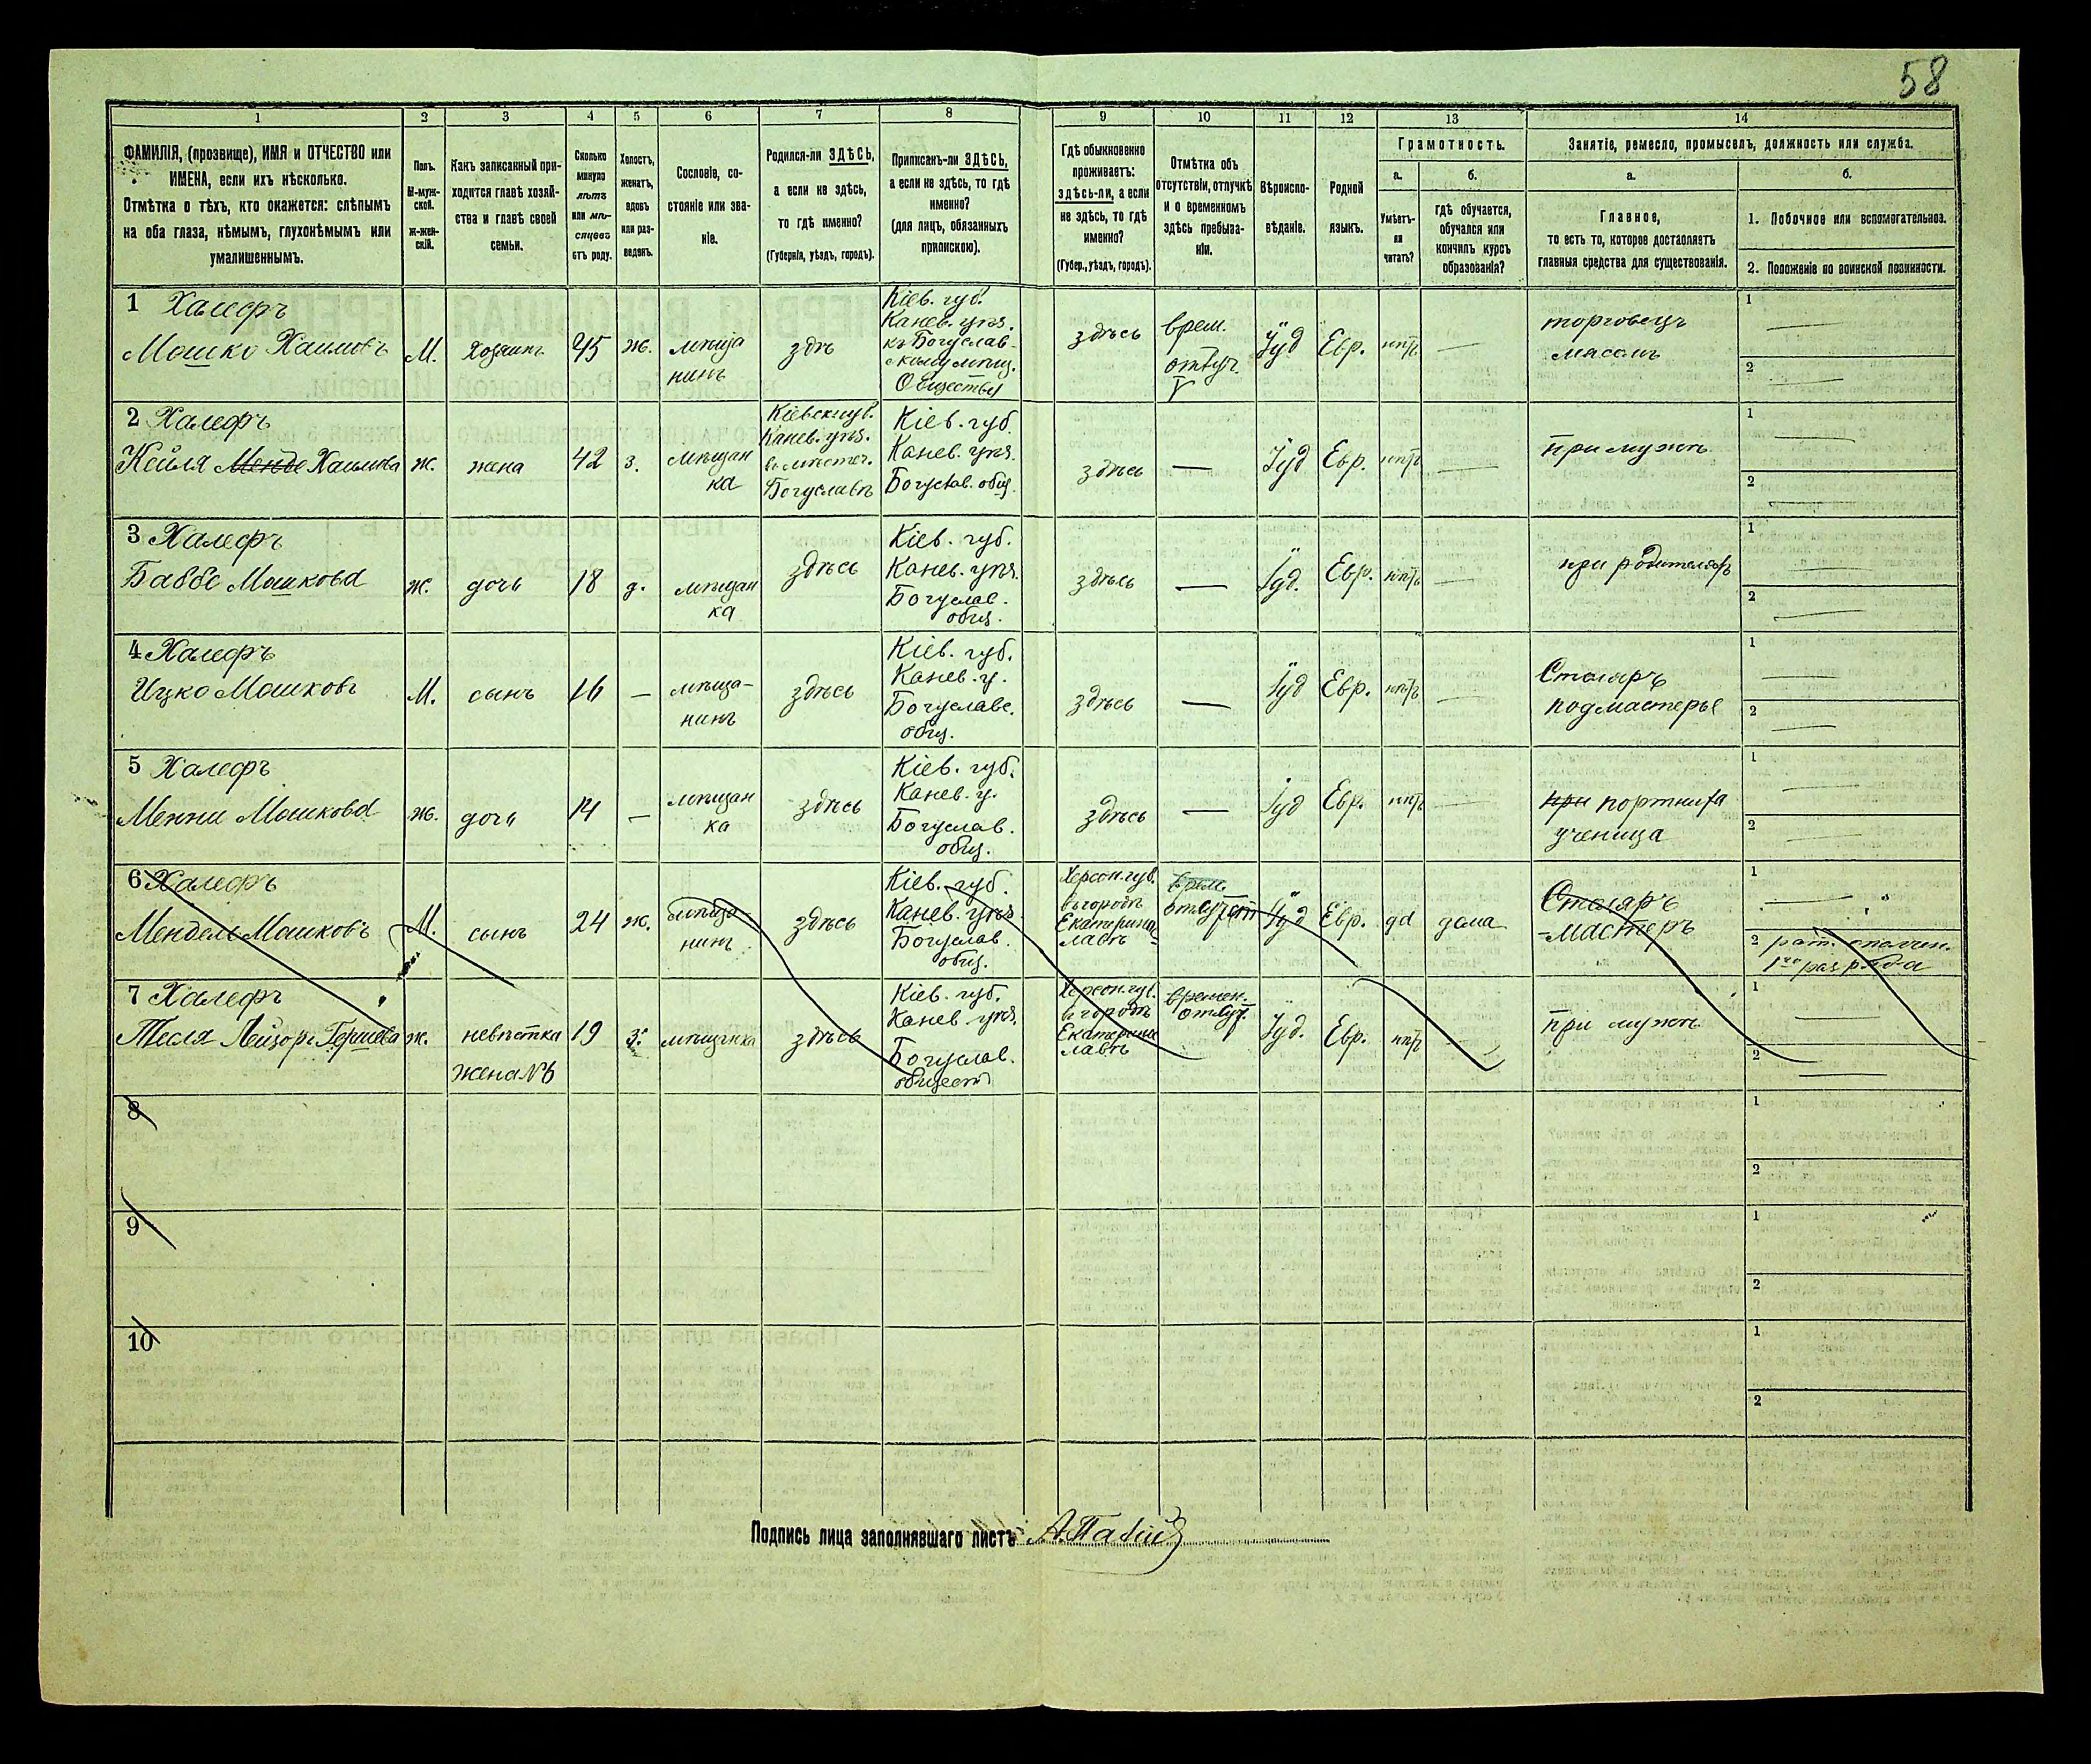 58
1 2 3 4 5 6 7 8 9 10 11 12 13 14
ФАМИЛІЯ, (прозвище), ИМЯ и ОТЧЕСТВО или
ИМЕНА, если ихъ нѣсколько.
Отмѣтка о тѣхъ, кто окажется: слѣпымъ
на оба глаза, нѣмымъ, глухонѣмымъ или
умалишеннымъ.
Полъ.
М-муж-
ской.
Ж-жен-
скій.
Какъ записанный при-
ходится главѣ хозяй-
ства и главѣ своей
семьи.
Сколько
минуло
лѣтъ
или мѣ-
сяцевъ
отъ роду.
Холостъ,
женатъ,
вдовъ
или раз-
веденъ.
Сословіе, со-
стояніе или зва-
ніе.
Родился-ли ЗДѢСЬ,
а если не здѣсь,
то гдѣ именно?
(Губернія, уѣздъ, городъ).
Приписанъ-ли ЗДѢСЬ,
а если не здѣсь, то гдѣ
именно?
(для лицъ, обязанныхъ
припискою).
Гдѣ обыкновенно
проживаетъ:
здѣсь-ли, а если
не здѣсь, то гдѣ
именно?
(Губер., уѣздъ, городъ).
Отмѣтка объ
отсутствіи, отлучкѣ
и о временномъ
здѣсь пребыва-
ніи.
Вѣроиспо-
вѣданіе.
Родной
языкъ.
Грамотность.
а.
Умѣетъ-
ли
читать?
б.
гдѣ обучается,
обучался или
кончилъ курсъ
образованія?
Занятіе, ремесло, промыселъ, должность или служба.
а.
Главное,
то есть то, которое доставляетъ
главныя средства для существованія.
б.
1. Побочное или вспомогательное.
2. Положеніе по воинской повинности.
1 Халефъ
Мошко Хаимовъ
М.
хозяинъ
45
ж.
мѣща
нинъ
здѣ
Кіев. губ.
Канев. уѣз.
къ Богуслав-
скому мѣщ.
Обществу
здѣсь
врем.
отлуч.
Іуд
Евр.
нѣтъ
—
торговецъ
мясомъ
1 —
2 —
2 Халефъ
Кейля Менде Хаимова
ж.
жена
42
з.
мѣщан
ка
Кіевск. губ.
Канев. уѣз.
в мѣстеч.
Богуславѣ
Кіев. губ.
Канев. уѣз.
Богуслав. общ.
здѣсь
—
Іуд
Евр.
нѣтъ
—
при мужѣ
1 —
2 —
3 Халефъ
Баббе Мошкова
ж.
дочь
18
д.
мѣщан
ка
здѣсь
Кіев. губ.
Канев. уѣз.
Богуслав.
общ.
здѣсь
—
Іуд.
Евр.
нѣтъ
—
при родителяхъ
1 —
2 —
4 Халефъ
Ицко Мошковъ
М.
сынъ
16
—
мѣща-
нинъ
здѣсь
Кіев. губ.
Канев. у.
Богуслав.
общ.
здѣсь
—
Іуд
Евр.
нѣтъ
—
Столяръ
подмастерье
1 —
2 —
5 Халефъ
Менни Мошкова
ж.
дочь
14
—
мѣщан
ка
здѣсь
Кіев. губ.
Канев. у.
Богуслав.
общ.
здѣсь
—
Іуд
Евр.
нѣтъ
—
при портниха
ученица
1 —
2 —
6 Халефъ
Мендель Мошковъ
М.
сынъ
24
ж.
мѣща-
нинъ
здѣсь
Кіев. губ.
Канев. уѣз.
Богуслав.
общ.
Херсон. губ.
в городѣ
Екатерино-
лавѣ
врем.
отлуч
Іуд
Евр.
да
дома
Столяръ
-мастеръ
1 —
2 рат. ополчен.
1го разряда
7 Халефъ
Песля Лейзоръ Гершова
ж.
невѣстка
жена №6
19
з.
мѣщанка
здѣсь
Кіев. губ.
Канев. уѣз.
Богуслав.
общест
Херсон. губ.
в городѣ
Екатерино
лавѣ
времен.
отлуч.
Іуд.
Евр.
нѣтъ
—
при мужѣ
1 —
2 —
8
1
2
9
1
2
10
1
2
Подпись лица заполнявшаго листъ